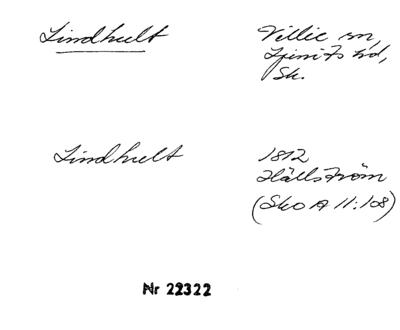 Lindhult
Villie sn,
Ljunits hd,
Sk.
Lindhult
1812
Hällström
(Sko A 11:108)
Nr 22322